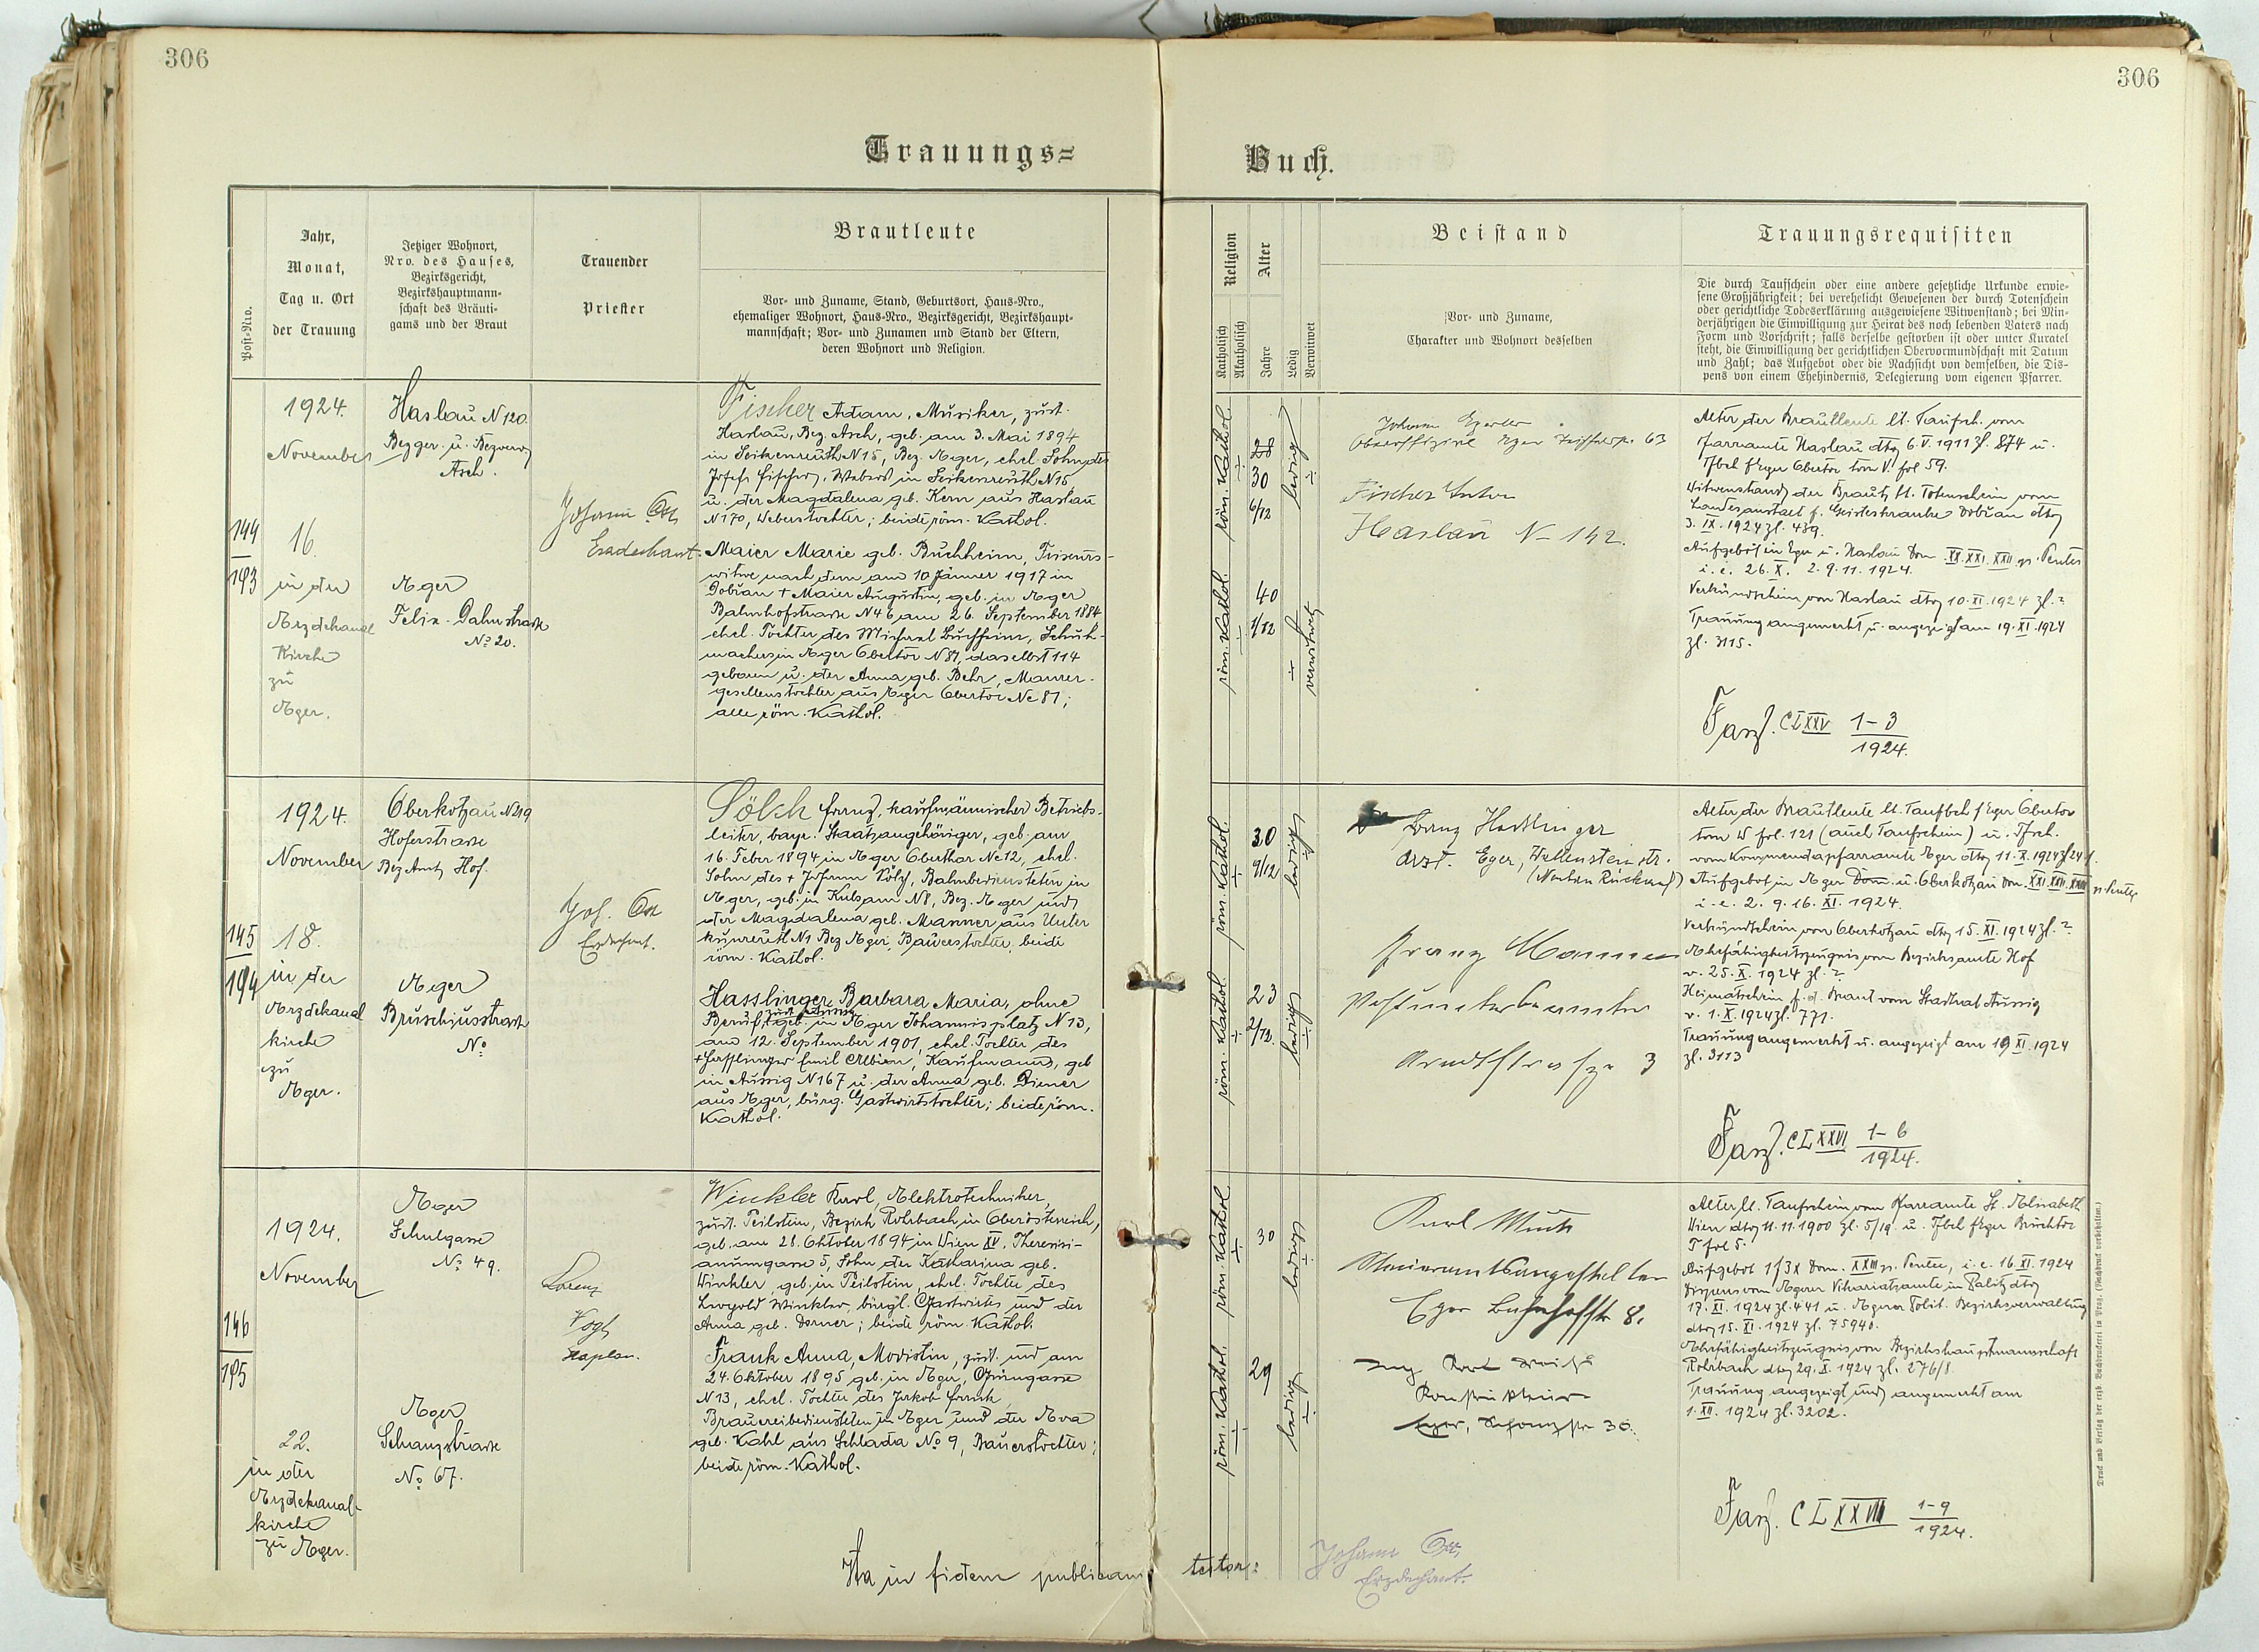 306
306
Trauungs=
Buch.
Post-Nro.
Jahr,
Monat,
Tag u. Ort
der Trauung
Jetziger Wohnort,
Nro. des Hauses,
Bezirksgericht,
Bezirkshauptmann-
schaft des Bräuti-
gams und der Braut
Trauender
Priester
Brautleute
Vor- und Zuname, Stand, Geburtsort, Haus-Nro.,
ehemaliger Wohnort, Haus-Nro., Bezirksgericht, Bezirkshaupt-
mannschaft; Vor- und Zunamen und Stand der Eltern,
deren Wohnort und Religion.
Religion
Katholisch
Akatholisch
Alter
Jahre
Ledig
Verwitwet
Beistand
Vor- und Zuname,
Charakter und Wohnort desselben
Trauungsrequisiten
Die durch Taufschein oder eine andere gesetzliche Urkunde erwie-
sene Großjährigkeit; bei verehelicht Gewesenen der durch Totenschein
oder gerichtliche Todeserklärung ausgewiesene Witwenstand; bei Min-
derjährigen die Einwilligung zur Heirat des noch lebenden Vaters nach
Form und Vorschrift; falls derselbe gestorben ist oder unter Kuratel
steht, die Einwilligung der gerichtlichen Obervormundschaft mit Datum
und Zahl; das Aufgebot oder die Nachsicht von demselben, die Dis-
pens von einem Ehehindernis, Delegierung vom eigenen Pfarrer.
144
193
1924.
November
16.
in der
Erzdekanal
Kirche
zu
Eger.
Haslau N 120.
Bez. ger. u. Bezverw
Asch.
Eger
Felix-Dahnstrasse
No 20.
Johann Ott
Erzdechant.
Fischer Adam, Musiker, zust.
Haslau, Bez. Asch, geb. am 3. Mai 1894
in Seikenreuth N 15, Bez. Eger, ehel. Sohn des
Josefs Fischer, Webers in Seikenreuth N 15
u. der Magdalena geb. Kern aus Haslau
N 170, Weberstochter; beide röm. Kathol.
Maier Marie geb. Buchheim, Friseurs-
witwe nach dem am 10 Jänner 1917 in
Dobran + Maier Augustin, geb. in Eger
Bahnhofstrasse N 46 am 26. September 1884
ehel. Tochter des Michael Buchheim, Schuh-
machers in Eger Obertor N 87, daselbst 114
geboren u. der Anna geb. Behr, Maurer-
gesellenstochter aus Eger Obertor No 87;
alle röm. Kathol.
röm. Kathol.
28
30
6/12
ledig
röm. Kathol.
40
1/12
verwitwet
Johann
Eger 63
Fischer Anton
Haslau N 142.
Alter der Brautleute lt. Taufsch. vom
Pfarramte Haslau dto 6.V.1911 zl. 874 u.
Tfbch f Eger Obertor tom V. fol 59.
Witwenstand der Braut lt. Totenschein vom
Landesanstalt f. Geisteskranke Dobran dto
3. IX. 1924 zl. 439.
Aufgebot in Eger u. Haslau Dom XX. XXI. XXII p. Pentec
i. e. 26. X. 2. 9. 11. 1924.
Verkündschein von Haslau dto 10. XI. 1924 zl. ?
Trauung angemerkt u. angezeigt am 19. XI. 1924
zl. 3115.
Fasz. CLXXV 1-3
1924.
145
194
1924.
November
18.
in der
Erzdekanal
kirche
zu
Eger.
Oberkotzau N 219
Hoferstrasse
Bez Amt Hof.
Eger
Bruschjusstrasse
No
Joh. Ott
Erzdechant.
Sölch Franz, kaufmännischer Betriebs-
leiter, bayr. Staatsangehöriger, geb. am
16. Feber 1894 in Eger Oberthor No 12, ehel.
Sohn des + Johann Sölch, Bahnbediensteten in
Eger, geb. in Kulsam N 8, Bez. Eger und
der Magdalena geb. Manner aus Unter
kunreuth N 1 Bez Eger, Bauerstochter, beide
röm. Kathol.
Hasslinger Barbara Maria, ohne
zust. Aussig
Beruf, geb. in Eger Johannisplatz N 13,
am 12. September 1901, ehel. Tochter des
+ Hasslinger Emil Albin, Kaufmanns, geb
in Aussig N 167 u. der Anna geb. Diener
aus Eger, bürg. Gastwirtstochter; beide röm.
Kathol.
röm. Kathol.
30
9/12
ledig
röm. Kathol.
23
2/12.
ledig
Hasslinger
Arzt. Eger, Wallensteinstr.
Franz Manner
3
Alter der Brautleute lt. Taufbch f Eger Obertor
tom W fol. 121 (auch Taufschein) u. Tfsch.
vom Kommendapfarramte Eger dto 11. X. 1924 zl 241.
Aufgebot in Eger u. Oberkotzau Dom. XXI. XXII. XXIII p. Pentec
i. e. 2. 9. 16. XI. 1924.
Verkündschein von Oberkotzau dto 15. XI. 1924 zl. ?
Ehefähigkeitszeugnis vom Bezirksamte Hof
v. 25. X. 1924 zl. ?
Heimatschein f. d. Braut vom Stadtrat Aussig
v. 1. X. 1924 zl. 771.
Trauung angemerkt u. angezeigt am 19 XI. 1924
zl. 3113
Fasz. CLXXVI 1-6
1924.
146
195
1924.
November
22.
in der
Erzdekanal-
kirche
zu Eger.
Eger
Schulgasse
No 49.
Eger
Schanzstrasse
No 67.
Lorenz
Vogl
Kaplan.
Winkler Karl, Elektrotechniker,
zust. Peilstein, Bezirk Rohrbach in Oberösterreich,
geb. am 28. Oktober 1894 in Wien IV. Theresi-
anumgasse 5, Sohn der Katharina geb.
Winkler, geb. in Peilstein, ehel. Tochter des
Leopold Winkler, bürgl. Gastwirtes und der
Anna geb. Dorner; beide röm. Kathol.
Frank Anna, Modistin, zust. und am
24. Oktober 1895 geb. in Eger, Grüngasse
N 13, ehel. Tochter des Jakob Frank,
Brauereibediensteten in Eger und der Eva
geb. Kahl aus Schlada No 9, Bauerstochter;
beide röm. Kathol.
röm. Kathol
30
ledig
röm. Kathol.
29
ledig
Karl
Eger Bahnhofstr 8.
Karl
Eger, Schanzstr 30.
Alter lt. Taufschein vom Pfarramte St. Elisabeth
Wien dto 11. 11. 1900 zl. 5/19 u. Tfbch f Eger Brucktor
T fol 5.
Aufgebot 1f3x Dom. XXIII p. Pentec, i. e. 16. XI. 1924
Dispens vom Egerer Vikariatsamte in Palitz dto
17. XI. 1924 zl. 441 u. Egerer Polit. Bezirksverwaltung
dto 15. XI. 1924 zl. 75940.
Ehefähigkeitszeugnis von Bezirkshauptmannschaft
Rohrbach dto 29. X. 1924 zl. 276/8.
Trauung angezeigt und angemerkt am
1. XII. 1924 zl. 3202.
Fasz. CLXXVII 1-9
1924.
Ita in fidem publicam testor:
Johann Ott,
Erzdechant.
Druck und Verlag der erzb. Buchdruckerei in Prag. (Nachdruck vorbehalten.)